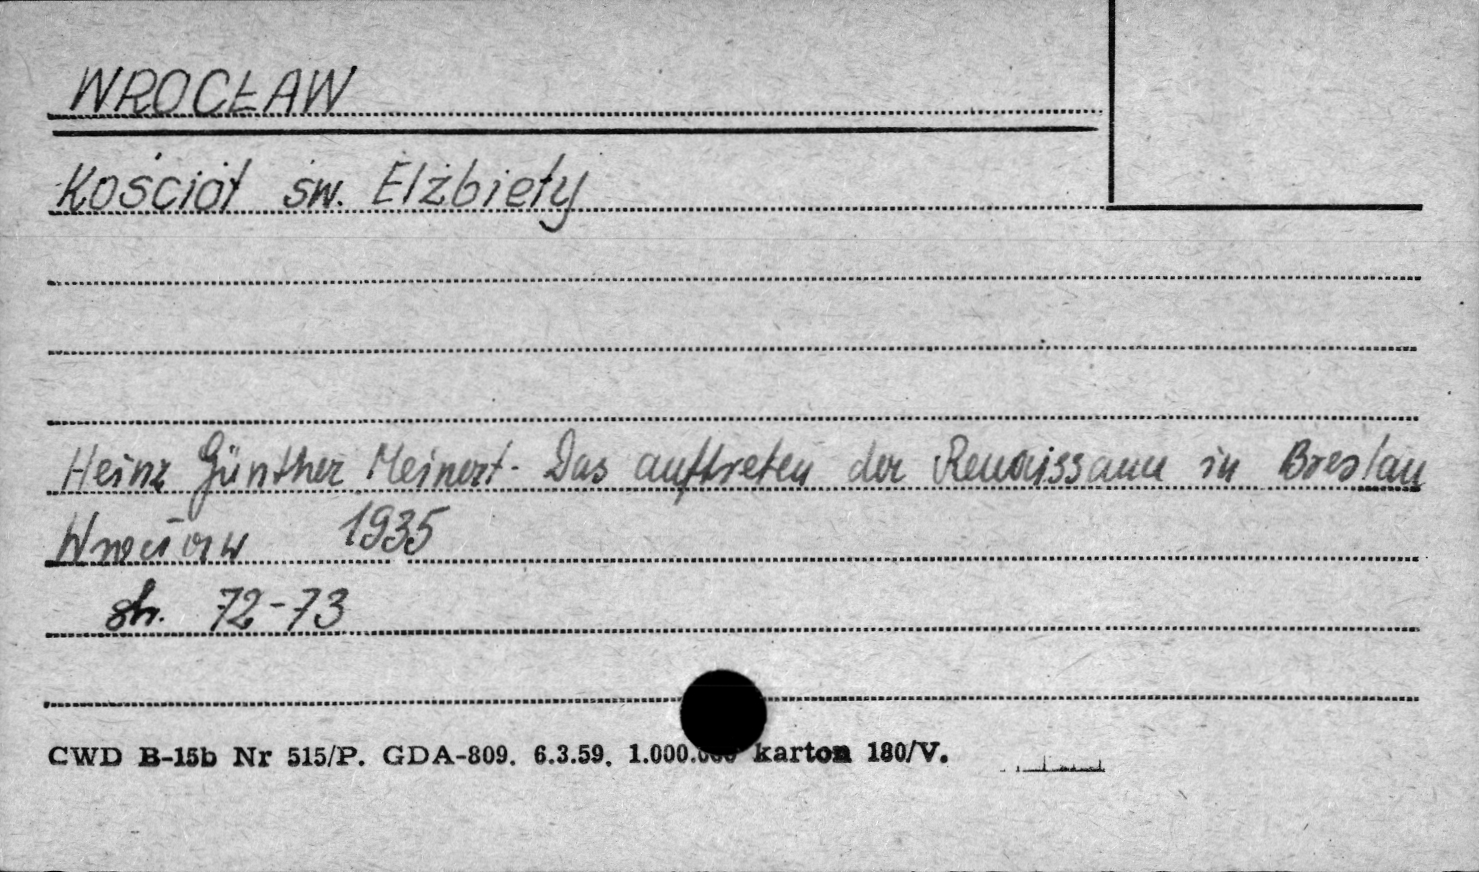 WROCŁAW
Kościół św. Elżbiety
Heinz Günther Meinert. Das auftreten der Renaissance in Breslau
Wrocław 1935
str. 72-73
CWD B-15b Nr 515/P. GDA-809. 6.3.59. 1.000.000 karton 180/V.